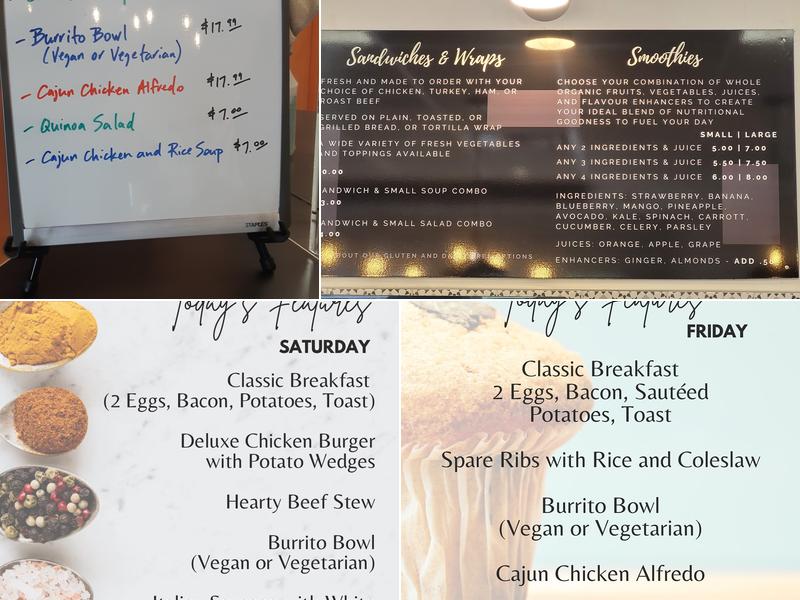 $17.99
- Burrito Bowl
(Vegan or Vegetarian)
- Cajun Chicken Alfredo $17.99
- Quinoa Salad $7.00
- Cajun Chicken and Rice Soup $7.00
STAPLES
Sandwiches & Wraps
FRESH AND MADE TO ORDER WITH YOUR
CHOICE OF CHICKEN, TURKEY, HAM, OR
ROAST BEEF
SERVED ON PLAIN, TOASTED, OR
GRILLED BREAD, OR TORTILLA WRAP
A WIDE VARIETY OF FRESH VEGETABLES
AND TOPPINGS AVAILABLE
0.00
ANDWICH & SMALL SOUP COMBO
3.00
ANDWICH & SMALL SALAD COMBO
.00
OUR GLUTEN AND OPTIONS
Smoothies
CHOOSE YOUR COMBINATION OF WHOLE
ORGANIC FRUITS, VEGETABLES, JUICES,
AND FLAVOUR ENHANCERS TO CREATE
YOUR IDEAL BLEND OF NUTRITIONAL
GOODNESS TO FUEL YOUR DAY
SMALL | LARGE
ANY 2 INGREDIENTS & JUICE 5.00 | 7.00
ANY 3 INGREDIENTS & JUICE 5.50 | 7.50
ANY 4 INGREDIENTS & JUICE 6.00 | 8.00
INGREDIENTS: STRAWBERRY, BANANA,
BLUEBERRY, MANGO, PINEAPPLE,
AVOCADO, KALE, SPINACH, CARROTT,
CUCUMBER, CELERY, PARSLEY
JUICES: ORANGE, APPLE, GRAPE
ENHANCERS: GINGER, ALMONDS - ADD .50
Today's Features
SATURDAY
Classic Breakfast
(2 Eggs, Bacon, Potatoes, Toast)
Deluxe Chicken Burger
with Potato Wedges
Hearty Beef Stew
Burrito Bowl
(Vegan or Vegetarian)
Today's Features
FRIDAY
Classic Breakfast
2 Eggs, Bacon, Sautéed
Potatoes, Toast
Spare Ribs with Rice and Coleslaw
Burrito Bowl
(Vegan or Vegetarian)
Cajun Chicken Alfredo